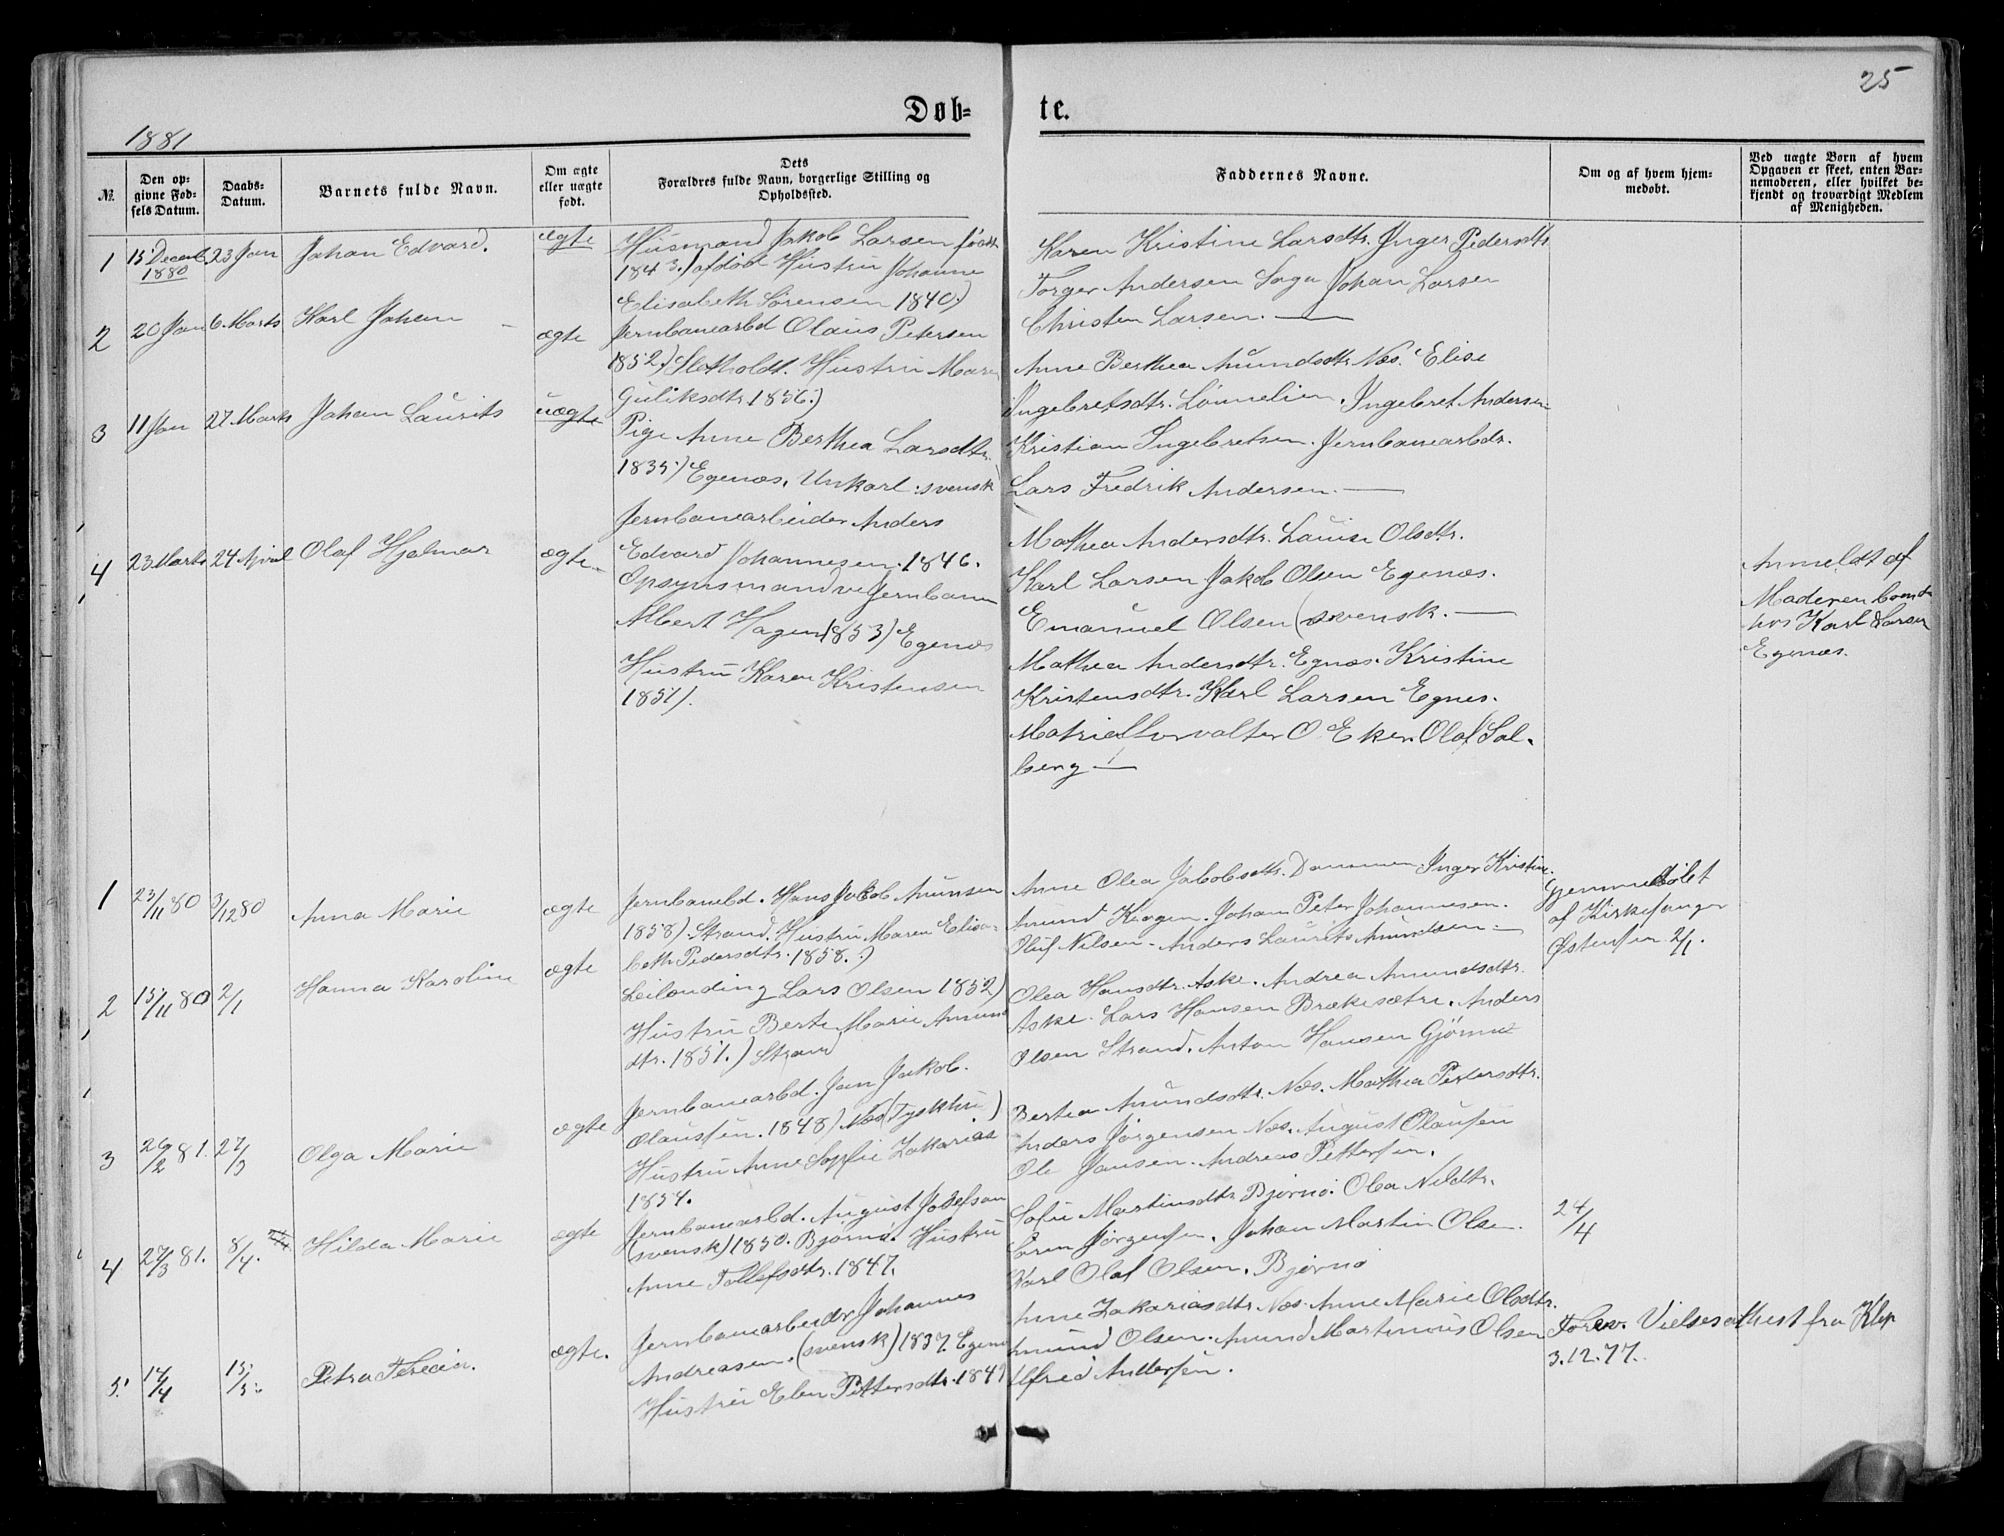 25
Døb- te.
1881
№
Den opgivne Fødsels Datum.
Daabs-Datum.
Barnets fulde Navn.
Om ægte eller uægte født.
Dets Forældres fulde Navn, borgerlige Stilling og Opholdssted.
Faddernes Navne.
Om og af hvem hjemmedøbt.
Ved uægte Børn af hvem Opgaven er skeet, enten Barnemoderen, eller hvilket bekjendt og troværdigt Medlem af Menigheden.
1 15 Decemb. 1880 23 Jan Johan Edvard. ægte
Husmand Jakob Larsen født
1843.) afdød Hustru Johanne
Elisabeth Sørensen 1840.)
Karen Kristine Larsdtr. Inger Pedersdtr
Torger Andersen Saga Johan Larsen
Christen Larsen.
2 20 Jan 6 Marts Karl Johan ægte
Jernbanearbd Olaus Petersen
1852.) Sletholdt. Hustru Maren
Guliksdtr. 1856.)
Anne Berthea Amundsdtr. Næs. Elise
Ingebretsdtr. Lønnelien. Ingebret Andersen
Kristian Ingebretsen. Jernbanearbdr.
Lars Fredrik Andersen.
3 11 Jan 27 Marts Johan Laurits uægte
Pige Anne Berthea Larsdtr.
1835.) Egenæs. Unkarl: svensk
Jernbanearbeider Anders
Edvard Johannesen. 1846.
Mathea Andersdtr. Lauise Olsdtr.
Karl Larsen Jakob Olsen Egenæs.
Emanuel Olsen (svensk.
Anmeldt af
Moderen boende
hos Karl Larsen
Egenæs.
4 23 Marts 24 April Olaf Hjalmar ægte
Opsynsmand ve Jernbanen
Albert Hagen 1853) Egenæs
Hustru Karen Kristensen
1851).
Mathea Andersdtr. Egnæs. Kristine
Kristensdtr. Karl Larsen Egnes.
Matrialforvalter O. Eker. Olaf Sol-
berg
1 23/11 80 3/12 80 Anna Marie ægte
Jernbanebd. Hans Jakob Amunsen
1858) Strand. Hustru Maren Elisa-
beth Pedersdtr. 1858.)
Anne Olea Jakobsdtr. Dammen. Inger Kristine
Amund Krogen. Johan Peter Johannesen.
Oluf Nilsen. Anders Laurits Amundsen
Hjemmedøbt
af Kirkesanger
Østensen 2/1.
2 15/11 80 2/1 Hanna Karoline ægte
Leilending Lars Olsen 1852)
Hustru Berte Marie Amund
dtr. 1851.) Strand
Olea Hansdtr. Aske. Andrea Amundsdtr.
Aske. Lars Hansen Brækesætre. Anders
Olsen Strand. Anton Hansen Gjørnes
3 26/2 81. 27/3 Olga Marie ægte
Jernbanearbd. Jan Jakob.
Olaussen. 1848) Næs (Tysktun)
Hustru Anne Sophie Zakarias
1854.
Bertea Amundsdtr. Næs. Mathea Petersdtr.
Anders Jørgensen Næs. August Olausen
Ole Jansen. Andreas Pettersen.
4 27/3 81. 8/4. Hilda Marie ægte
Jernbanearbd. August Josefson
(svensk) 1850. Bjørnø. Hustru
Anne Tollefsdtr. 1847.
Sofie Martinsdtr Bjørnø. Olea Nilsdtr.
Even Jørgensen. Johan Martin Olsen.
Karl Olaf Olsen. Bjørnø
24/4
5. 14/4 15/5. Petra ægte.
Jernbanearbeider Johannes
Andreasen. (svensk) 1837. Egenæs
Hustru Elen Pettersdtr. 1849
Anne Zakariasdtr. Næs. Anne Marie Olsdtr.
Amund Olsen. Amund Martinius Olsen
Alfred Andersen.
Forev. Vielsesattest fra Klep
3.12.77.